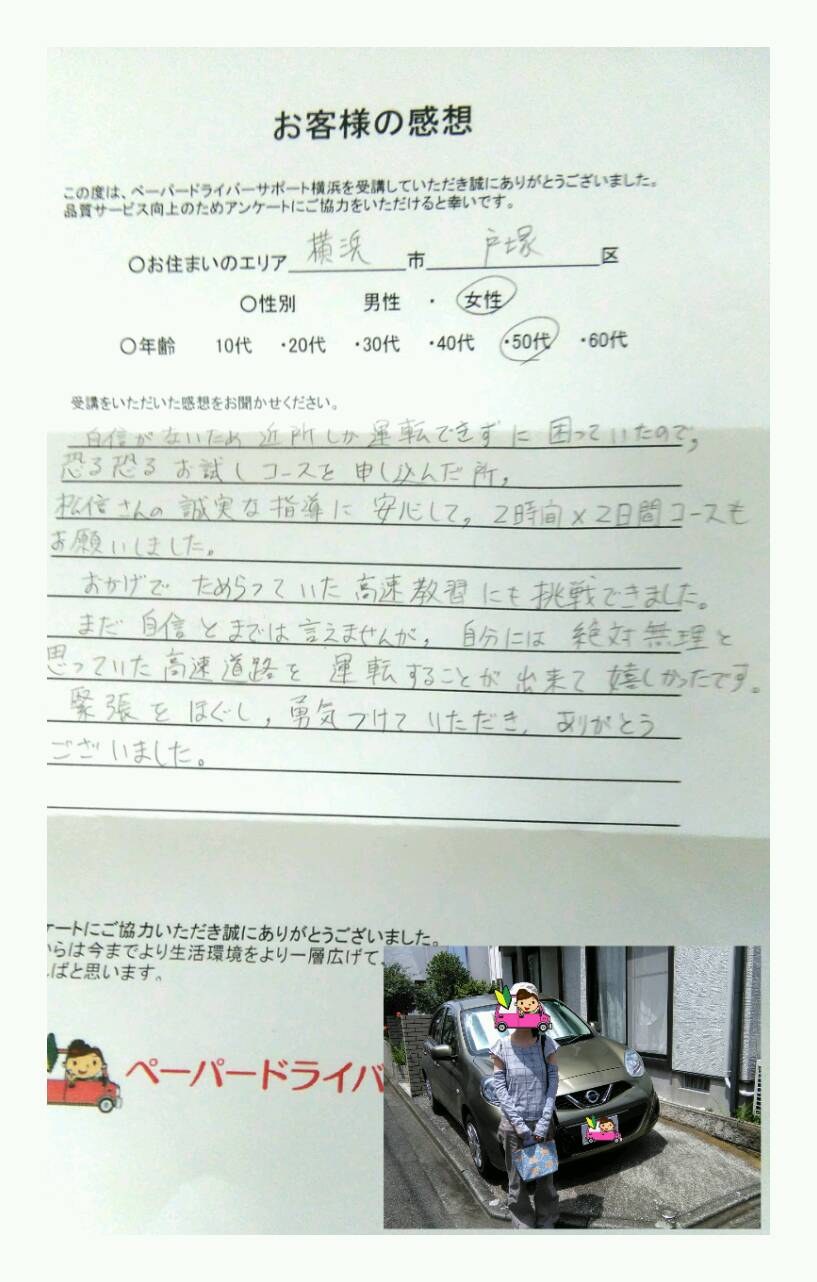 お客様の感想
この度は、ペーパードライバーサポート横浜を受講していただき誠にありがとうございました。
品質サービス向上のためアンケートにご協力をいただけると幸いです。
○お住まいのエリア 横浜 市 戸塚 区
○性別 男性 ・ 女性
○年齢 10代 ・20代 ・30代 ・40代 ・50代 ・60代
受講をいただいた感想をお聞かせください。
自信がないため 近所しか運転できずに 困っていたので,
恐る恐る お試しコースを 申し込んだ所,
松信さんの 誠実な指導に 安心して, 2時間×2日間コースも
お願いしました。
おかげで ためらっていた 高速教習にも 挑戦できました。
まだ 自信とまでは言えませんが, 自分には 絶対無理と
思っていた 高速道路を 運転することが 出来て 嬉しかったです。
緊張を ほぐし, 勇気つけて いただき, ありがとう
ございました。
ケートにご協力いただき誠にありがとうございました。
からは今までより生活環境をより一層広げて
ればと思います。
ペーパードライバ